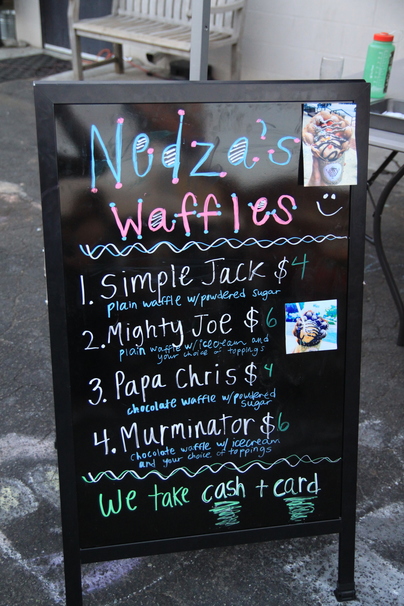 Nedza's
Waffles
1. Simple Jack $4
plain waffle w/powdered sugar
2. Mighty Joe $6
plain waffle w/icecream and
your choice of toppings
3. Papa Chris $4
chocolate waffle w/powdered
sugar
4. Murminator $6
chocolate waffle w/icecream
and your choice of toppings
We take cash + card